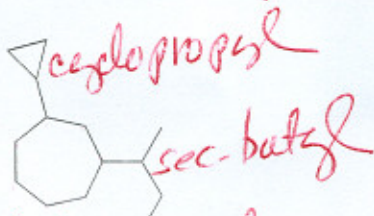 cyclopropyl
sec-butyl